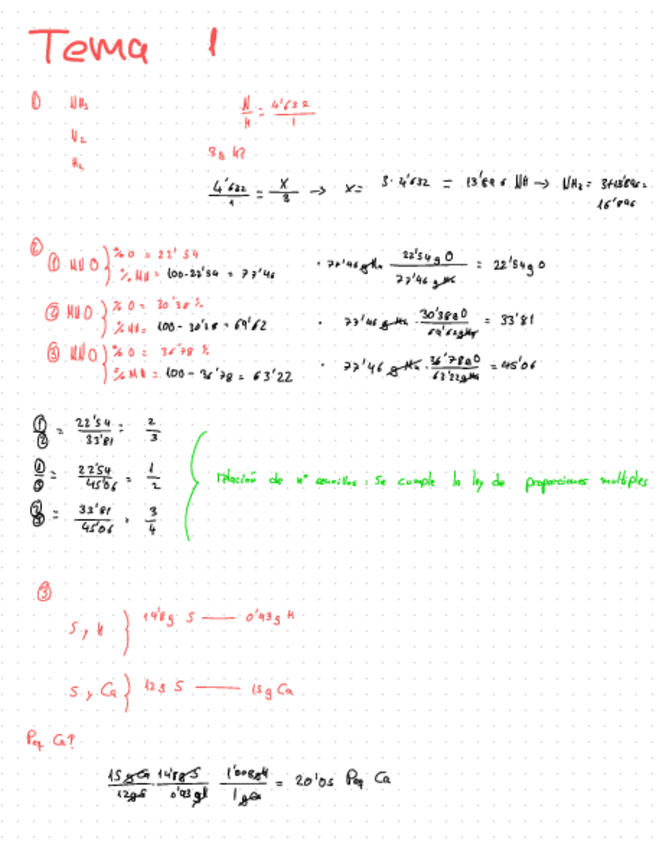 Tema 1
① NH₃ N/H = 4'632/1
N₂
H₂ 3g H?
4'632/1 = X/3 → X = 3·4'632 = 13'896 → NH₃ = 3+13'896 =
16'896
②
① MnO } % O = 22'54 · 77'46 g Mn 22'54 g O/77'46 g Mn = 22'54 g O
% Mn = 100-22'54 = 77'46
② MnO } % O = 30'38 % · 77'46 g Mn · 30'38 g O/69'62 g Mn = 33'81
% Mn = 100 - 30'38 = 69'62
③ MnO } % O = 36'78 % · 77'46 g Mn · 36'78 g O/63'22 g Mn = 45'06
% Mn = 100 - 36'78 = 63'22
①/② = 22'54/33'81 = 2/3
①/③ = 22'54/45'06 = 1/2 relación de nº sencillos: Se cumple la ley de proporciones multiples
②/③ = 33'81/45'06 = 3/4
③
S y H } 14'8 g S — 0'93 g H
S y Ca } 12 g S — 15 g Ca
Peq Ca?
15 g Ca/12 g S · 14'8 g S/0'93 g H 1'008 g H/1 = 20'05 Peq Ca